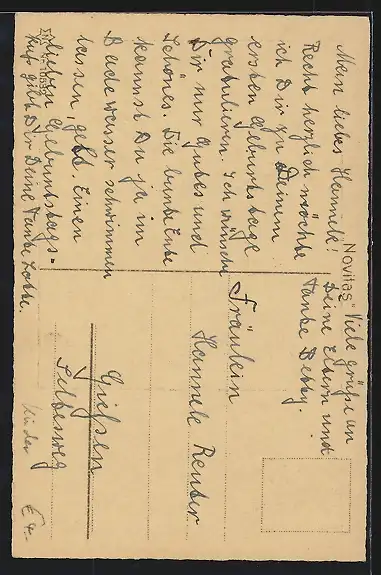 Mein liebes Hannele!
Recht herzlich möchte
ich Dir zu Deinem
ersten Geburtstage
gratulieren. Ich wünsche
Dir nur Gutes und
Schönes. Die bunte Ente
kannst Du ja im
Badewasser schwimmen
lassen, gelt. Einen
lieben Geburtstags-
kuß gibt Dir Deine Tante Lotte.
Viele Grüße an
Deine Eltern und
Tante Betty.
"Novitas"
Fräulein
Hannele Reuter
Gießen